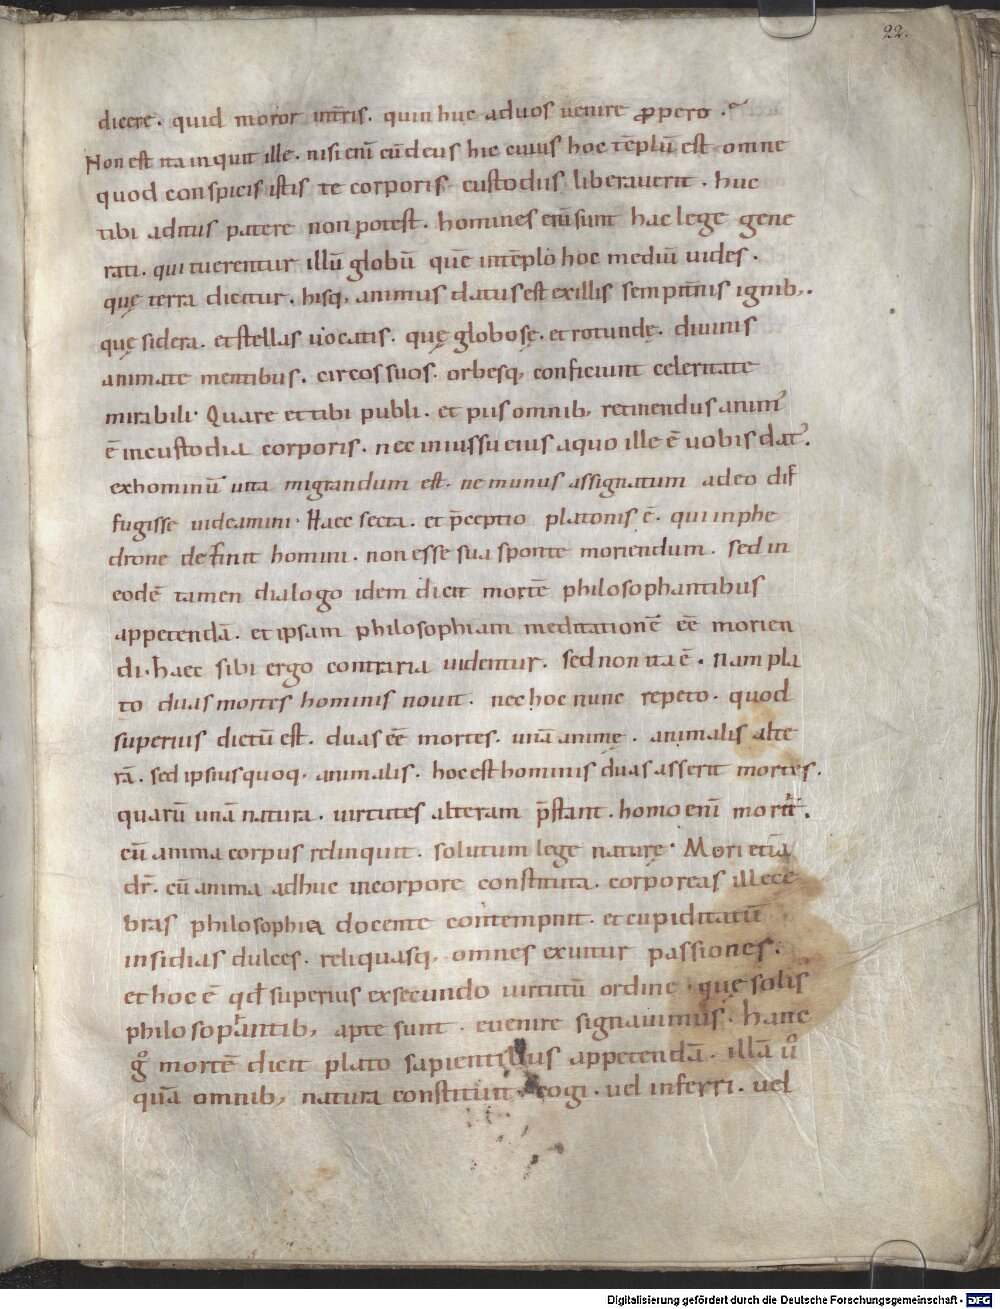 22.
dicere. quid moror int̄ris. quin huc aduos uenire p̱pero .
Non est ita inquit ille. nisi eni᷄ cū deus hic cuius hoc tēplū est omne
quod conspicis istis te corporis custodiis liberauerit. huc
tibi aditus patere non potest. homines eni᷄ sunt hac lege gene
rati. qui tuerentur illū globū quē intēplo hoc mediū uides.
quę terra dicitur. hisq; animus datus est exillis sempit̄nis ignib;.
quę sidera. et stellas uocatis. quę globosę. et rotundę. diuinis
animate mentibus. circos suos. orbesq; conficiunt celeritate
mirabili. Quare et tibi publi. et piis omnib; retinendus anim᷒
ē incustodia corporis. nec iniussu eius aquo ille ē uobis dat᷒.
exhominū uita migrandum est. ne munus assignatum adeo dif
fugisse uideamini. Haec secta. et p̄ceptio platonis ē. qui inphe
drone definit homini. non esse sua sponte moriendum. sed in
eodē tamen dialogo idem dicit mortē philosophantibus
appetendā. et ipsam philosophiam meditationē eē morien
di. haec sibi ergo contraria uidentur. sed non ita ē. Nam pla
to duas mortes hominis nouit. nec hoc nunc repeto. quod
superius dictū est. duas eē mortes. unā animę. animalis alte
rā. sed ipsius quoq; animalis. hoc est hominis duas asserit mortes.
quarū unā natura. uirtutes alteram p̄stant. homo eni᷄ morit᷒.
cū anima corpus relinquit. solutum lege naturę. Mori etiā
dr̄. cū anima adhuc incorpore constituta. corporeas illece
bras philosophia docente contempnit. et cupiditatū
insidias dulces. reliquasq; omnes exuitur passiones.
et hoc ē qđ superius exsecundo uirtutū ordine. quę solis
philosophantib; apte sunt. euenire signauimus. hanc
gͦ mortē dicit plato sapientibus appetendā. illā uͦ
quā omnib; natura constituit. cogi. uel inferri. uel
Digitalisierung gefördert durch die Deutsche Forschungsgemeinschaft - DFG